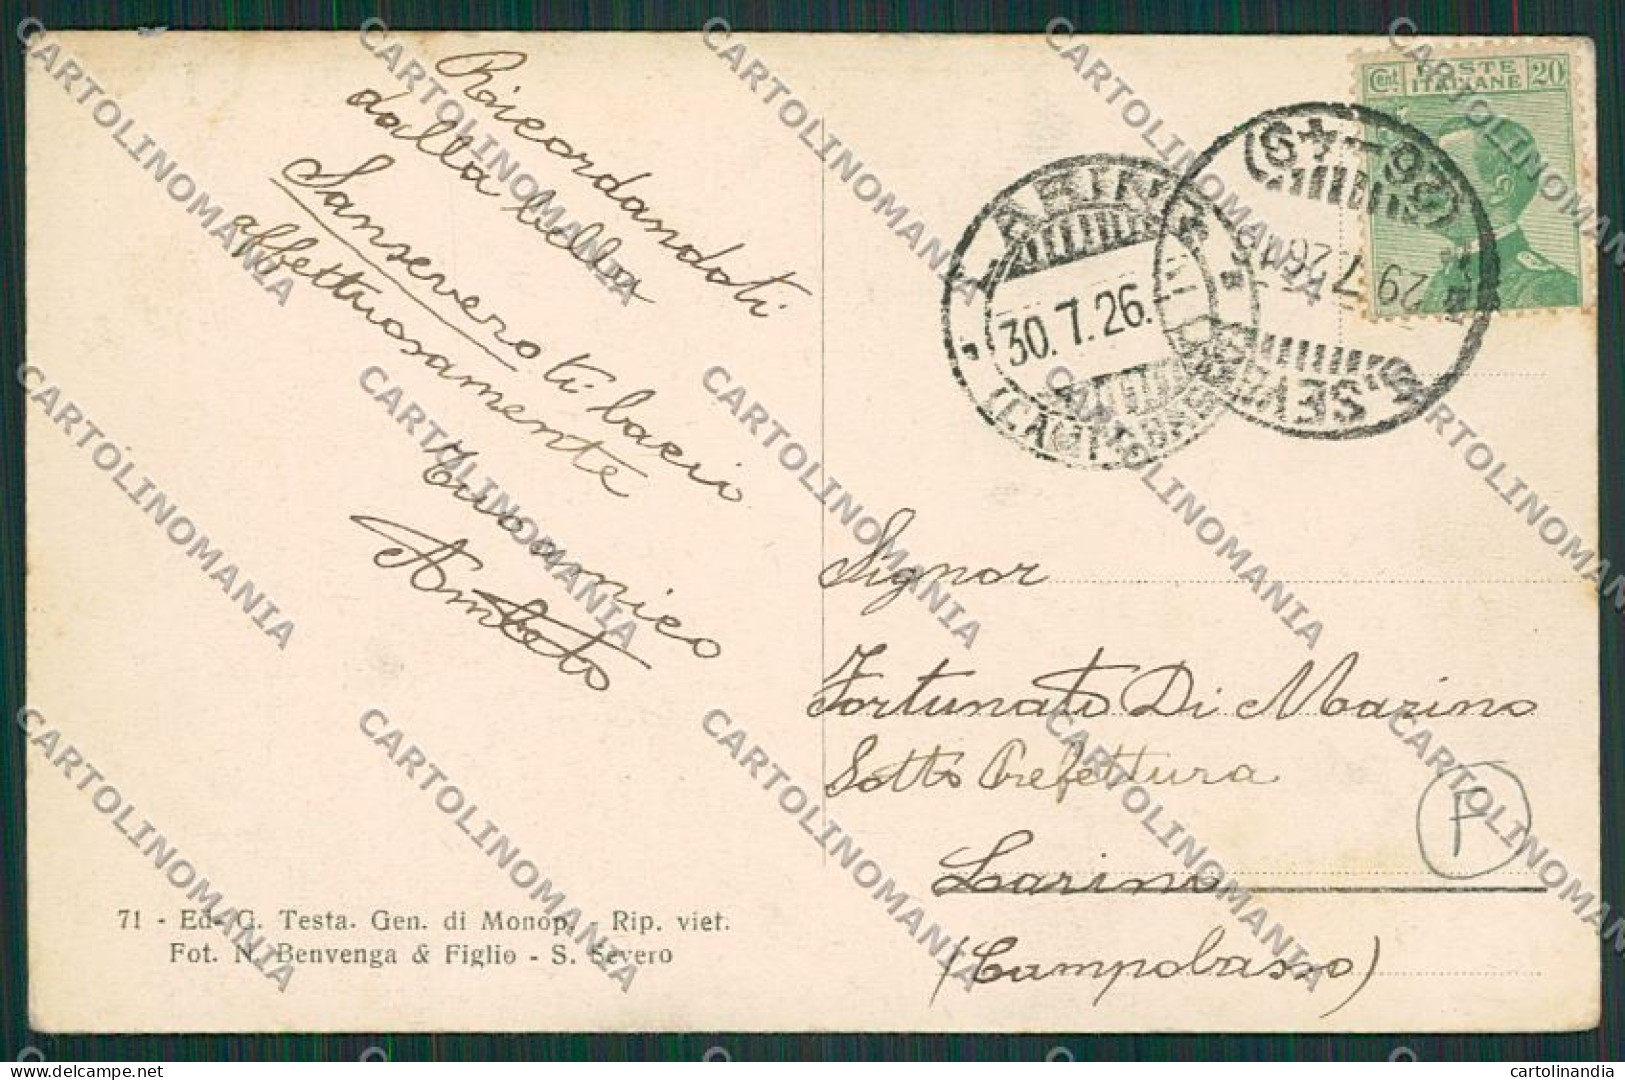 Ricordandoti
dalla bella
Sansevero ti bacio
affettuosamente
Tuo amico
Cent. POSTE ITALIANE 20
LARINO
30.7.26.
(CAMPOBASSO)
29 7 26
S. SEVERO
(26-49)
Signor
Fortunato Di Marino
Sotto Prefettura
Larino
(Campobasso)
F
71 - Ed. G. Testa. Gen. di Monop. - Rip. viet.
Fot. N. Benvenga & Figlio - S. Severo
CARTOLINOMANIA
cartolinandia